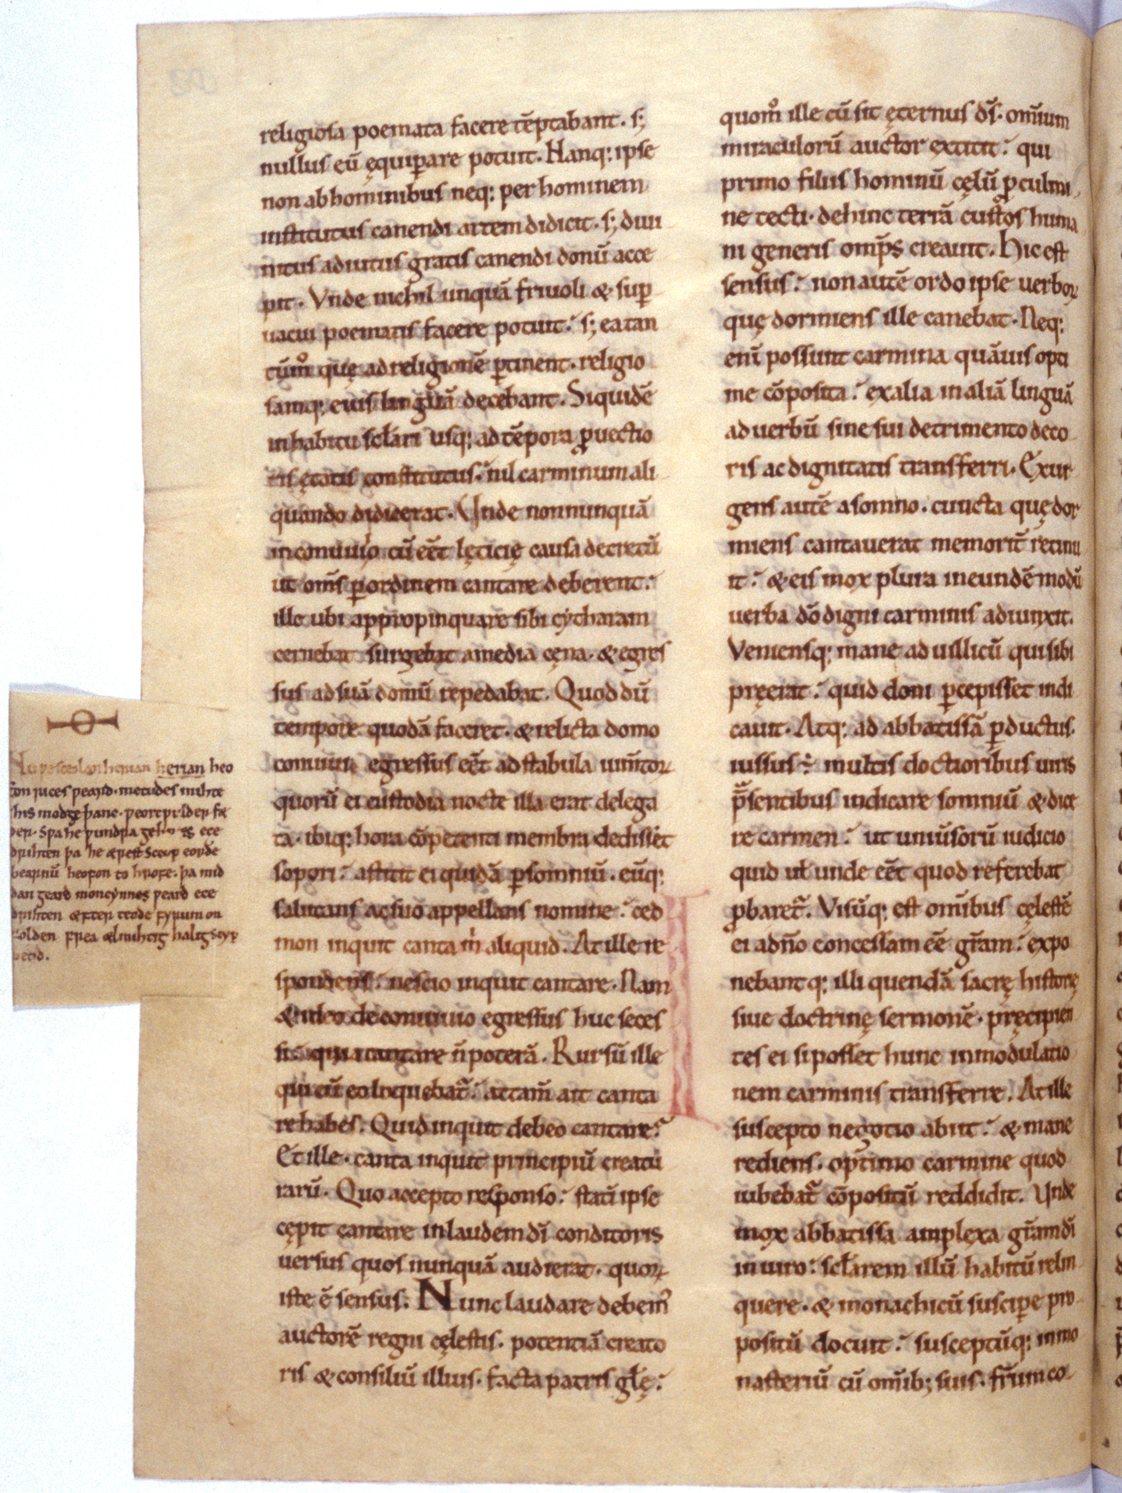 religiosa poemata facere tēptabant . s;
nullus eū ęquip̄are potuit . Nanq; ipse
non ab hominibus neq; per hominem
institutus canendi artem didicit . s; diui
nitus adiutus gratis canendi donū acce
pit . Vnde nichil unquā friuoli & sup̱
uacui poematis facere potuit . s; ea tan
tūm̊ quę ad religionē ꝑtinent . religio
samq; eius linguā decebant . Siquidē
in habitu sc̄lari usq; ad tēpora ꝓuectio
ris ętatis constitutus . nil carminum ali
quando didicerat . Unde nonnunquā
in conuiuio cū eēt lęticię causa decretū
ut om̄s ꝑ ordinem cantare deberent .
ille ubi appropinquare sibi cytharam
cernebat surgebat a media cęna . & egres
sus ad suā domū repedabat . Quod dū
tempore quodā faceret . & relicta domo
conuiuii egressus eēt ad stabula ium̄toꝝ
quorū ei custodia nocte illa erat delega
ta . ibiq; hora cōpetenti membra dedisset
sopori . astitit ei quidā ꝑ somniū . eūq;
salutans ac suo appellans nomine . ced
mon inquit canta m̄ aliquid . At ille re
spondens . nescio inquit cantare . Nam
& ideo de conuiuio egressus huc seces
si . quia cantare n̄ poterā . Rursū ille
qui cū eo loquebat᷑ . attam̄ ait canta
re habes . Quid inquit debeo cantare?
Et ille . canta inquit principiū creatu
rarū . Quo accepto responso . statī ipse
cępit cantare in laudem dī conditoris
uersus quos nunquā audierat . quoꝝ
iste ē sensus . Nunc laudare debem᷒
auctorē regni cęlestis . potentiā creato
ris & consiliū illius . facta patris glę̄ .
quom̊ ille cū sit ęternus dś . omīum
miraculorū auctor extitit . qui
primo filiis hominū cęlū ꝓ culmi
ne tecti . dehinc terrā custos huma
ni generis omp̄s creauit . Hic est
sensus . non autē ordo ipse uerboꝝ
quę dormiens ille canebat . Neq;
enī possunt carmina quāuis opti
me cōposita . ex alia in aliā linguā
ad uerbū sine sui detrimento deco
ris ac dignitatis transferri . Exur
gens autē a somno . cuncta quę dor
miens cantauerat memorit̄ retinu
it . & eis mox plura in eundē modū
uerba dō digni carminis adiunxit .
Veniensq; mane ad uillicū qui sibi
pręerat . quid doni ꝑcepisset indi
cauit . Atq; ad abbatissā ꝑductus .
iussus ē multis doctioribus uiris
p̄sentibus indicare somniū & dice
re carmen . ut uniūsorū iudicio
quid uł unde eēt quod referebat
ꝓbaret᷑ . Visūq; est omībus cęlestē
ei a dn̄o concessam eē gr̄am . expo
nebantq; illi quendā sacrę historię
siue doctrinę sermonē . pręcipien
tes ei si posset hunc in modulatio
nem carminis transferre . At ille
suscepto negotio abiit . & mane
rediens . optimo carmine quod
iubebat᷑ cōpositū reddidit . Unde
mox abbatissa amplexa gr̄am dī
in uiro . sc̄larem illū habitū relin
quere . & monachicū suscipe pro
positū docuit . susceptūq; in mo
nasteriū cū omīb; suis . fr̄um co
Nu ƿe sceolan herian herian heo
fon rices ƿeard . metudes mihte
his modgeþanc . ƿeorc ƿulder fæ
der . sƿa he ƿundra gehƿæs ece
drihten þa he ærest sceop eorðe
bearnū heofon to hrofe . þa mid
dan geard moncynnes ƿeard ece
drihten æfter teode fyrum on
folden frea ælmihtig halig scyp
pend .